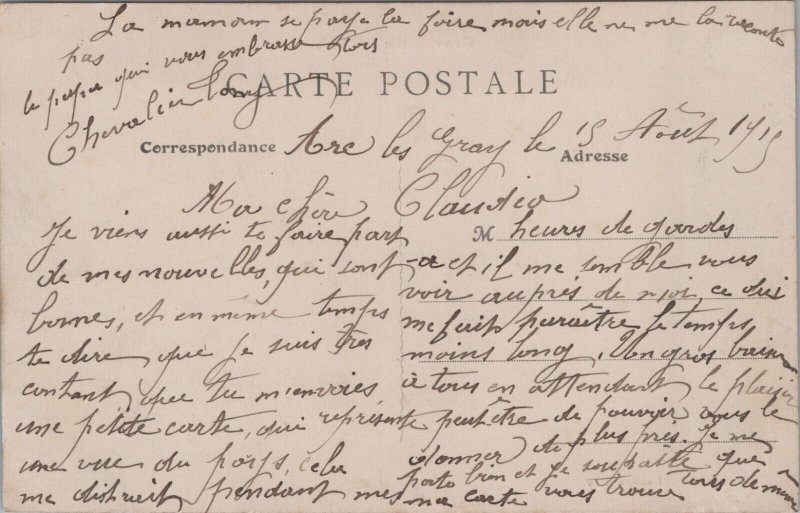 La maman se paye la foire mais elle ne me la raconte
pas
le papa qui vous embrasse tous
Chevalier
CARTE POSTALE
Correspondance
Adresse
Arc les Gray le 15 Août 1915
Ma chère Claudia
Je viens aussi te faire part
de mes nouvelles, qui sont
bonnes, et en même temps
te dire que je suis très
content que tu m'envoies
une petite carte, qui représente
une vue du pays, cela
me distrait pendant mes
M heures de gardes
et il me semble vous
voir auprès de moi, ce qui
me fait paraître le temps
moins long. Un gros baiser
à tous en attendant le plaisir
peut être de pouvoir vous le
donner de plus près. Je me
porte bien et je souhaite que
ma carte vous trouve tous de même